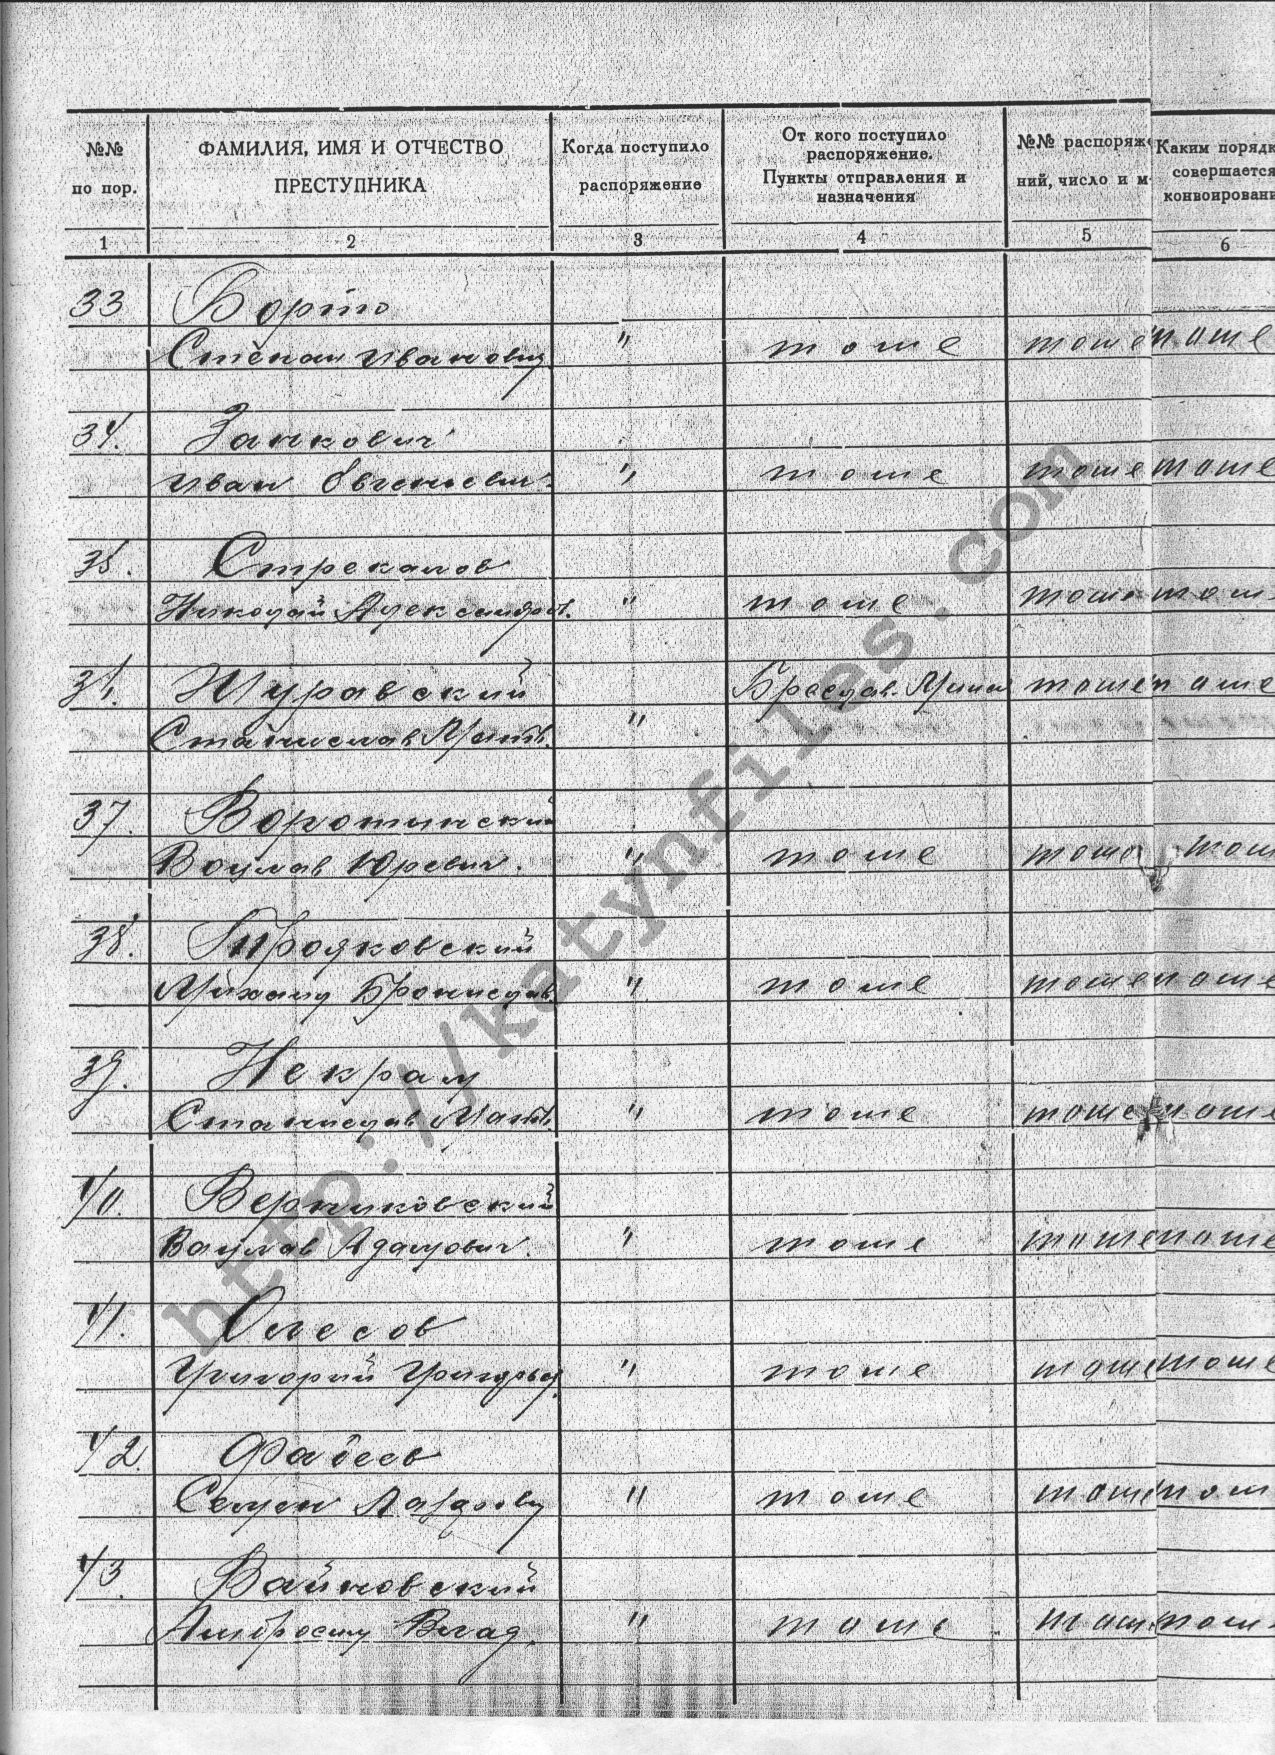 №№ по пор.
ФАМИЛИЯ, ИМЯ И ОТЧЕСТВО ПРЕСТУПНИКА
Когда поступило распоряжение
От кого поступило распоряжение. Пункты отправления и назначения
№№ распоряже ний, число и м
Каким порядк совершается конвоировани
1 2 3 4 5 6
33
Степан Иванович " тоже тоже тоже
34. Занкович
Иван Евгеньевич. " тоже тоже тоже
35. Стрекалов
Николай Александров. " тоже тоже тоже
Журавский Браслав. тоже тоже
Станислав "
37. Воротинский
Вацлав Юревич. " тоже тоже тоже
38.
Михаил Бронислав " тоже тоже тоже
39. Некраш
Станислав " тоже тоже тоже
40. Верниковский
Вацлав Адамович. " тоже тоже тоже
41.
Григорий " тоже тоже тоже
42. Фабеев
Семен " тоже тоже тоже
43. Войновский
Влад. " тоже тоже тоже
http://katynfiles.com